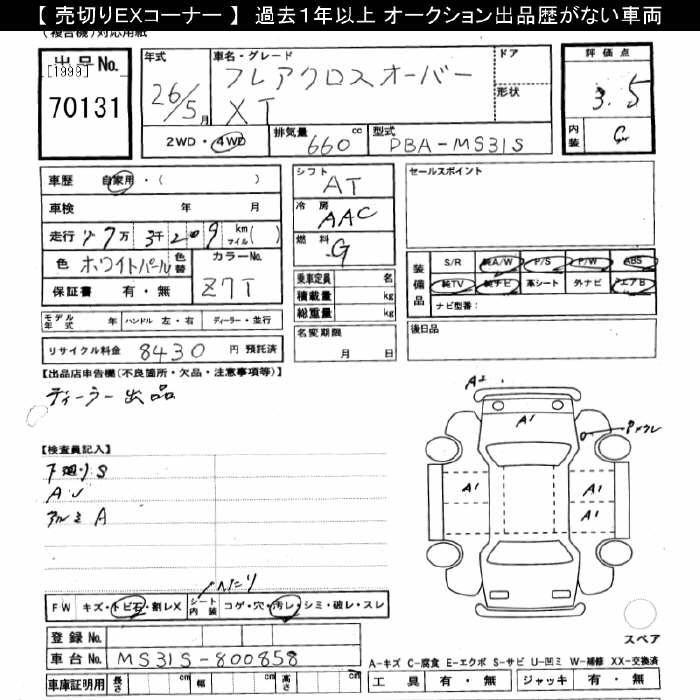 【 売切りEXコーナー 】 過去１年以上 オークション出品歴がない車両
(複合機)対応用紙
出品No.
[1999]
70131
年式
26/5月
車名・グレード
フレアクロスオーバー
XT
ドア
形状
2WD・4WD
排気量 660 cc
型式 DBA-MS31S
評価点
3.5
内装
C
車歴 自家用・( )
車検 年 月
走行 7万 3千 2 0 9 km マイル( )
色 ホワイトパール 色替
カラーNo. Z7T
保証書 有・無
シフト AT
冷房 AAC
燃料 G
乗車定員 名
積載量 kg
総重量 kg
名変期限
月 日
セールスポイント
装備品
S/R 純A/W P/S P/W ABS
純TV 純ナビ 革シート 外ナビ エアB
ナビ型番：
後日品
モデル年式 年 ハンドル 左・右 ディーラー・並行
リサイクル料金 8430 円 預託済
【出品店申告欄(不良箇所・欠品・注意事項等)】
ディーラー出品
【検査員記入】
下廻りS
A U
アルミA
A2
A1
A1
A1
A1
FW キズ・トビ石・割レX
シート内装 コゲ・穴・汚レ・シミ・破レ・スレ
登録No.
車台No. MS31S-800858
車庫証明用 長さ cm 幅 cm 高さ cm
スペア
A-キズ C-腐食 E-エクボ S-サビ U-凹ミ W-補修 XX-交換済
工具 有・無 ジャッキ 有・無